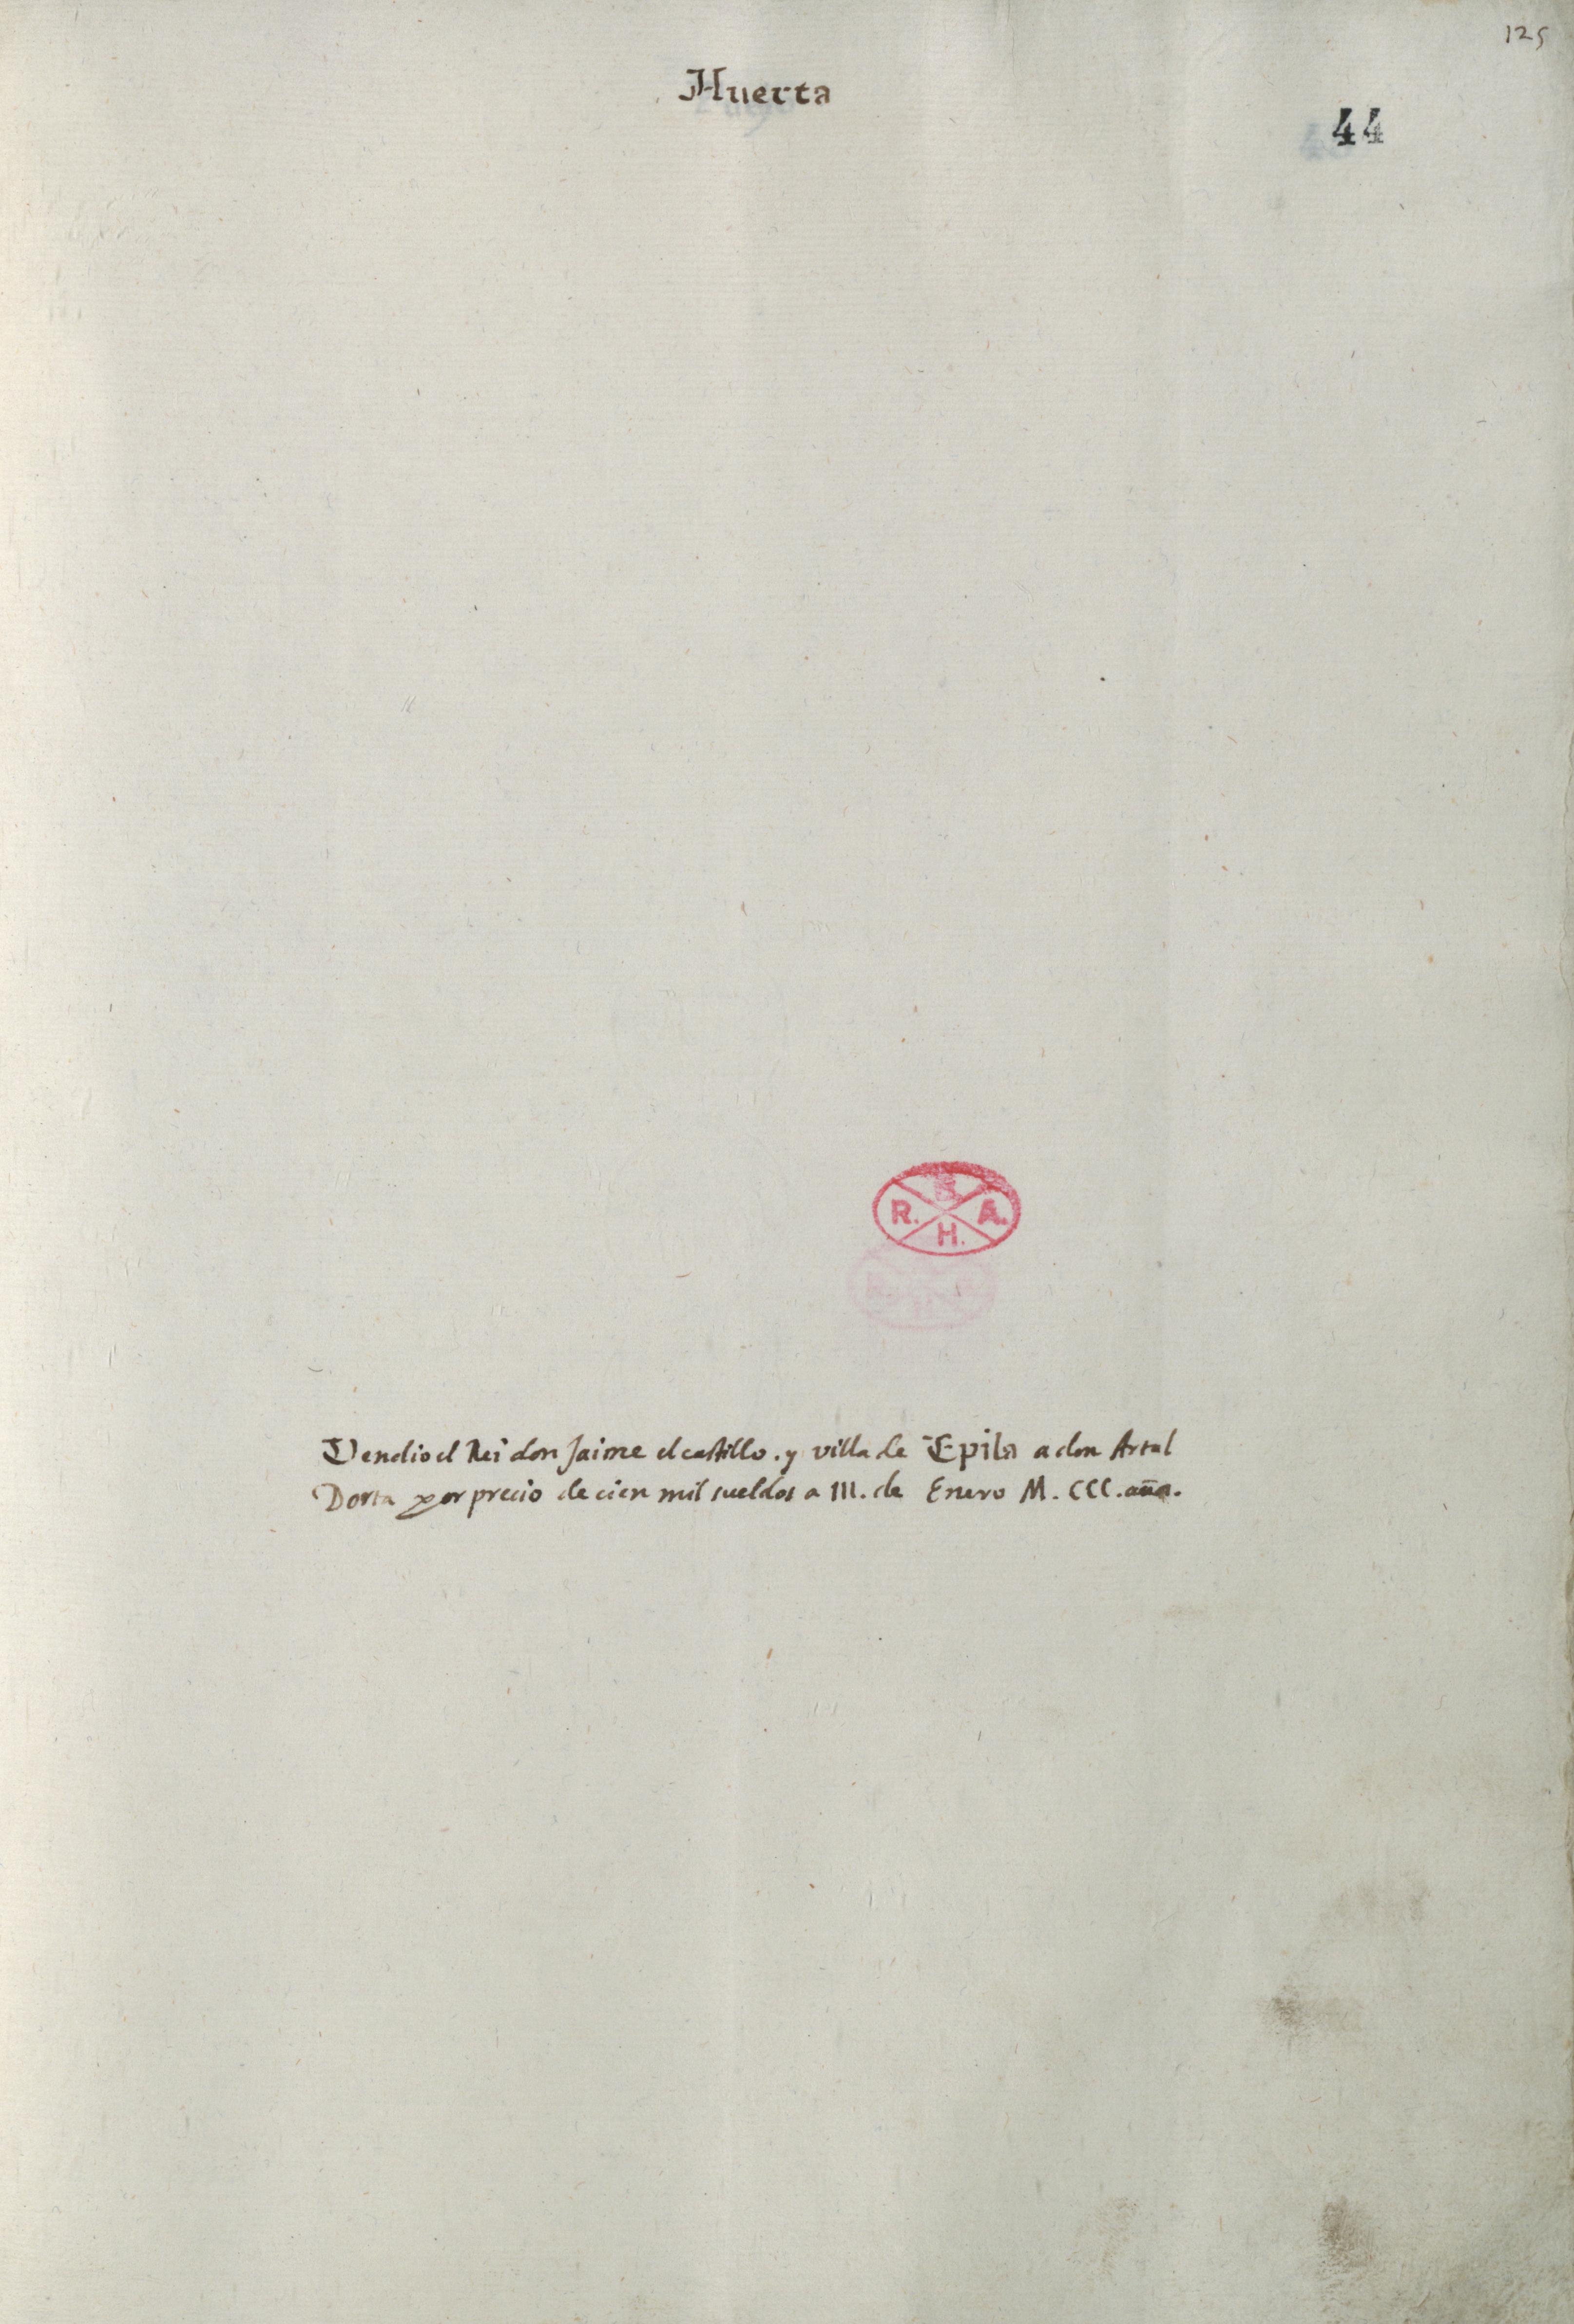 125
Huerta
44
B
R. A.
H.
Vendio el Rei don Jaime el castillo . y villa de Epila a don Artal
Dorta por precio de cien mil sueldos a III. de Enero M. CCC.